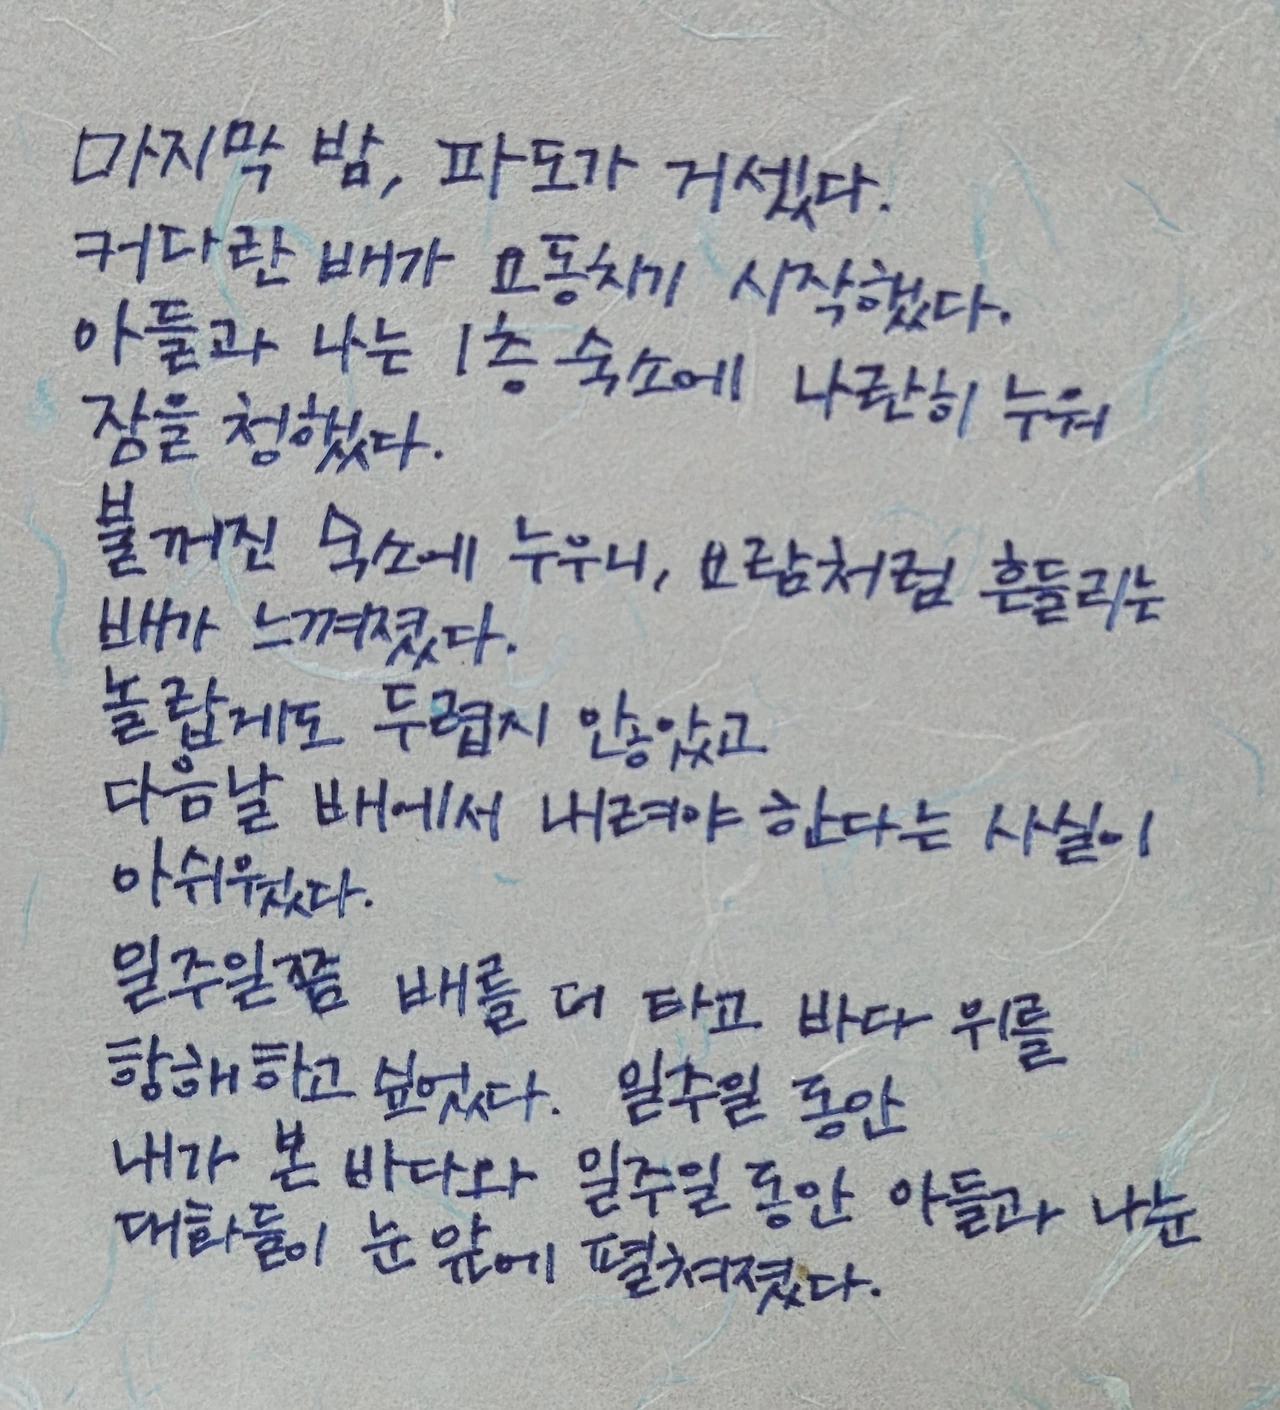 마지막 밤, 파도가 거셌다.
커다란 배가 요동치기 시작했다.
아들과 나는 1층 숙소에 나란히 누워
잠을 청했다.
불꺼진 숙소에 누우니, 요람처럼 흔들리는
배가 느껴졌다.
놀랍게도 두렵지 않았고
다음날 배에서 내려야 한다는 사실이
아쉬웠다.
일주일쯤 배를 더 타고 바다 위를
항해하고 싶었다. 일주일 동안
내가 본 바다와 일주일 동안 아들과 나눈
대화들이 눈앞에 펼쳐졌다.